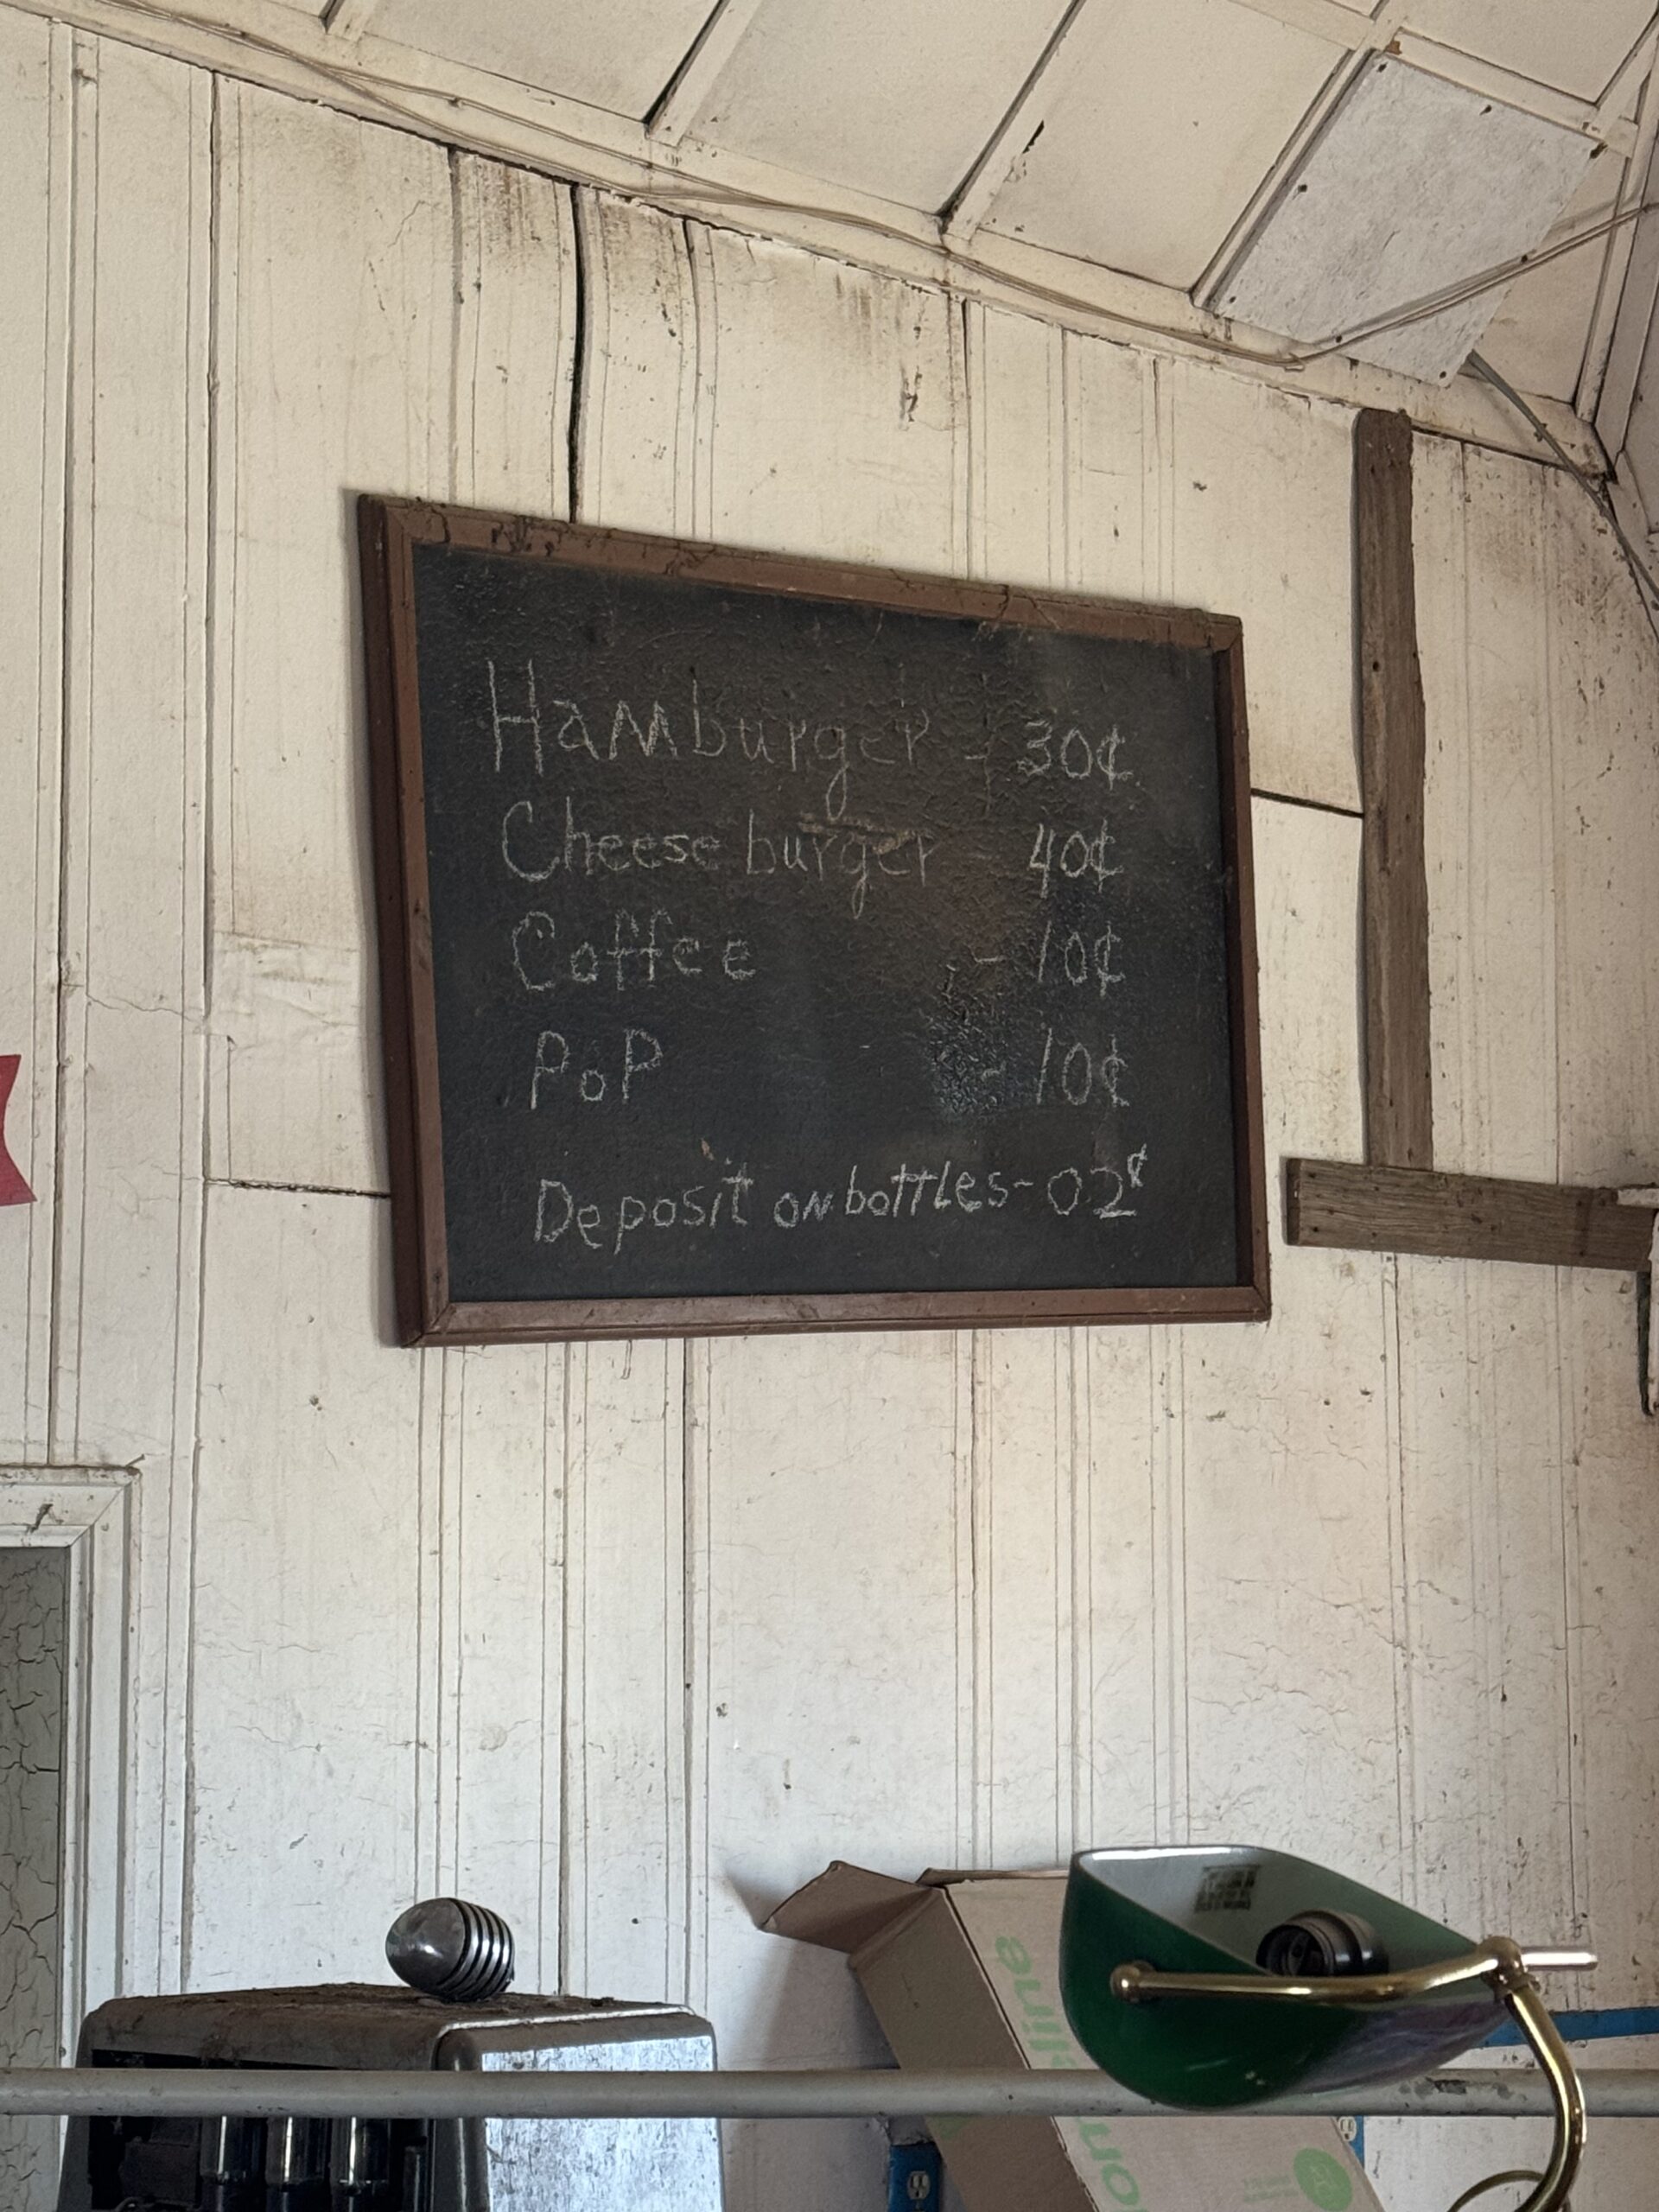 Hamburger - 30¢
Cheese burger 40¢
Coffee - 10¢
PoP - 10¢
Deposit on bottles - 02¢